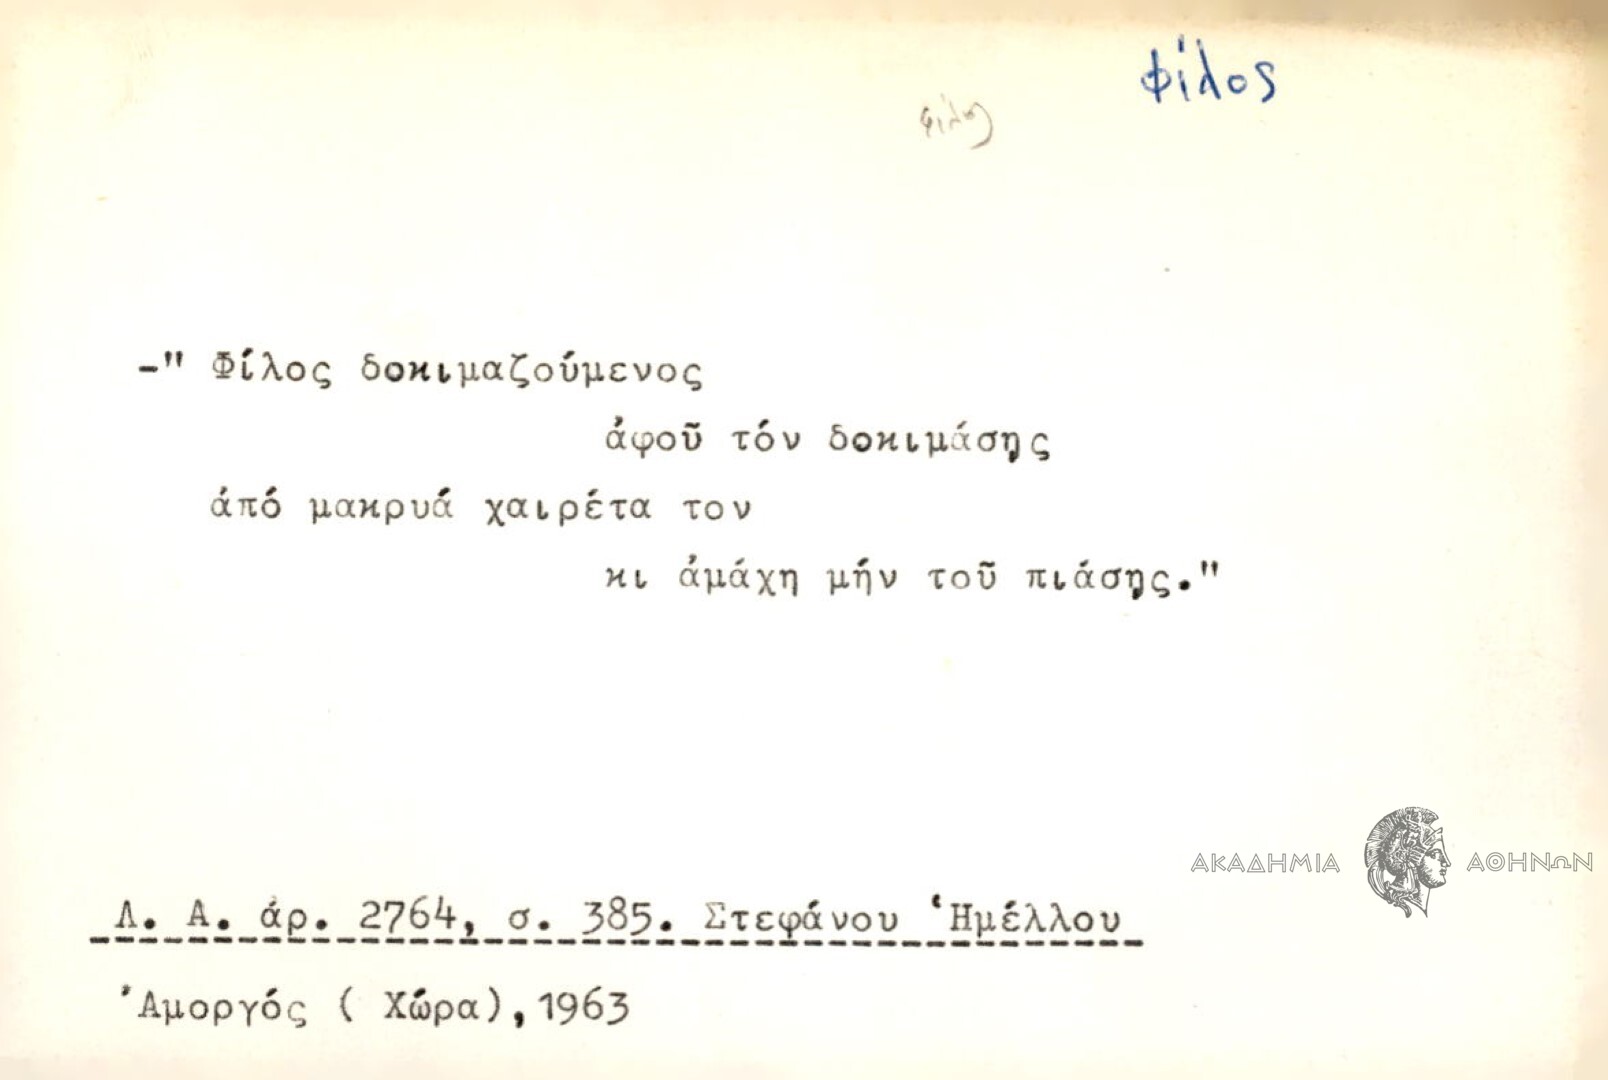 φίλος
φίλος
-" Φίλος δοκιμαζούμενος
ἀφοῦ τόν δοκιμάσῃς
ἀπό μακρυά χαιρέτα τον
κι ἀμάχη μήν τοῦ πιάσῃς."
ΑΚΑΔΗΜΙΑ ΑΘΗΝΩΝ
Λ. Α. ἀρ. 2764, σ. 385. Στεφάνου Ἡμέλλου
Ἀμοργός ( Χώρα), 1963